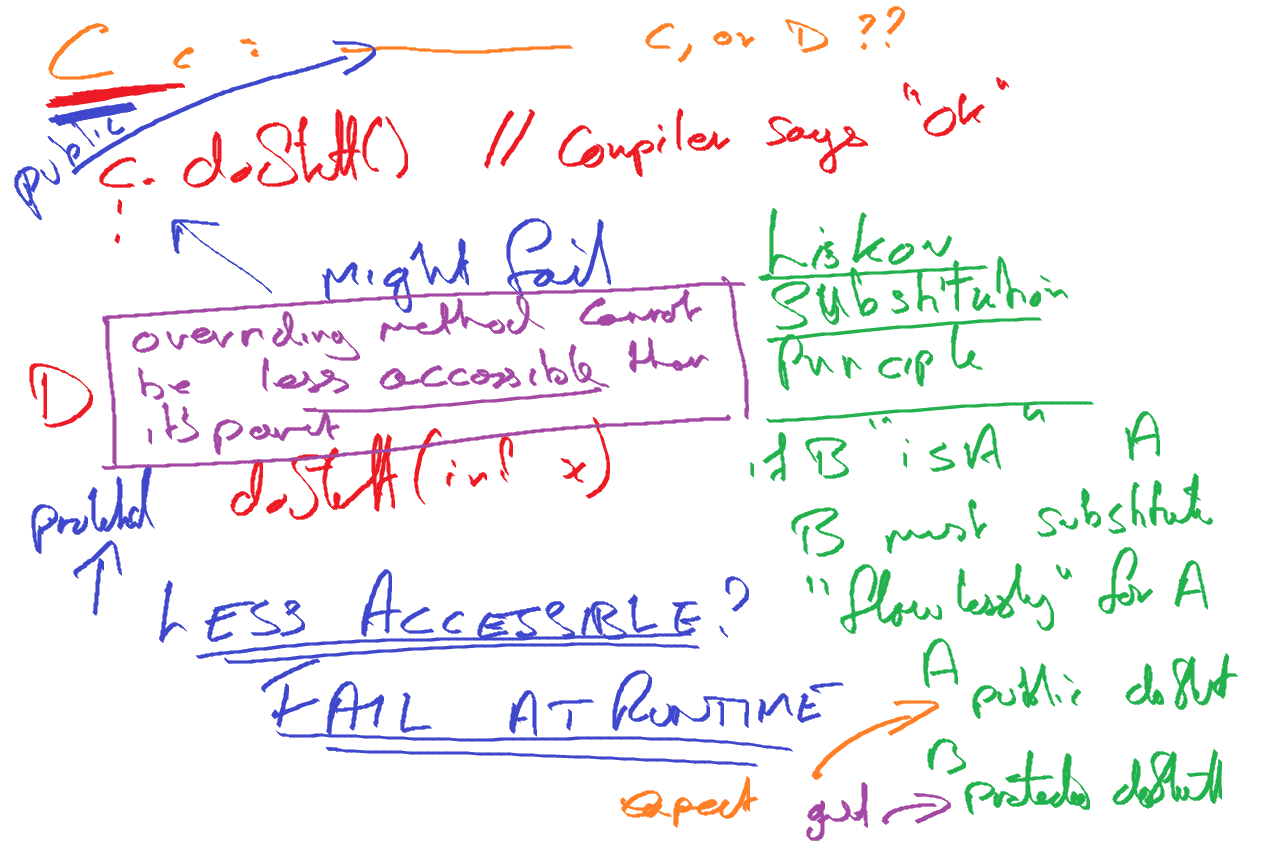 C c = C, or D ??
public
c. doStuff() // Compiler says "ok"
:
might fail
overriding method cannot
be less accessible than
its parent
D
doStuff(int x)
protected
LESS ACCESSIBLE?
FAIL AT RUNTIME
Liskov
Substitution
Principle
if B "is A" A
B must substitute
"flowlessly" for A
A
public doStuff
B
protected doStuff
expect